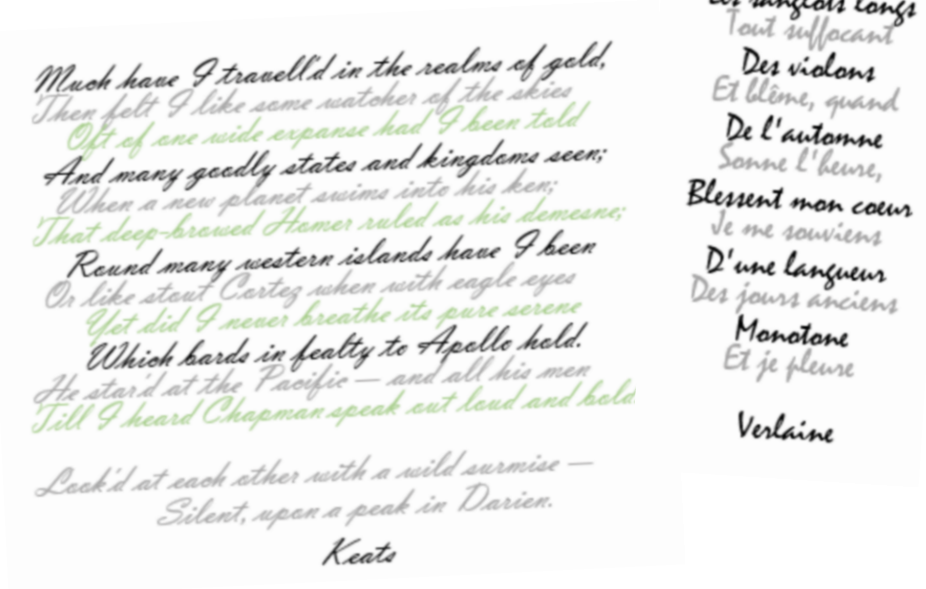 Much have I travell'd in the realms of gold,
Then felt I like some watcher of the skies
Oft of one wide expanse had I been told
And many goodly states and kingdoms seen;
When a new planet swims into his ken;
That deep-browed Homer ruled as his demesne;
Round many western islands have I been
Or like stout Cortez when with eagle eyes
Yet did I never breathe its pure serene
Which bards in fealty to Apollo hold.
He star'd at the Pacific — and all his men
Till I heard Chapman speak out loud and bold
Look'd at each other with a wild surmise —
Silent, upon a peak in Darien.
Keats
sanglots longs
Tout suffocant
Des violons
Et blême, quand
De l'automne
Sonne l'heure,
Blessent mon coeur
Je me souviens
D'une langueur
Des jours anciens
Monotone
Et je pleure
Verlaine